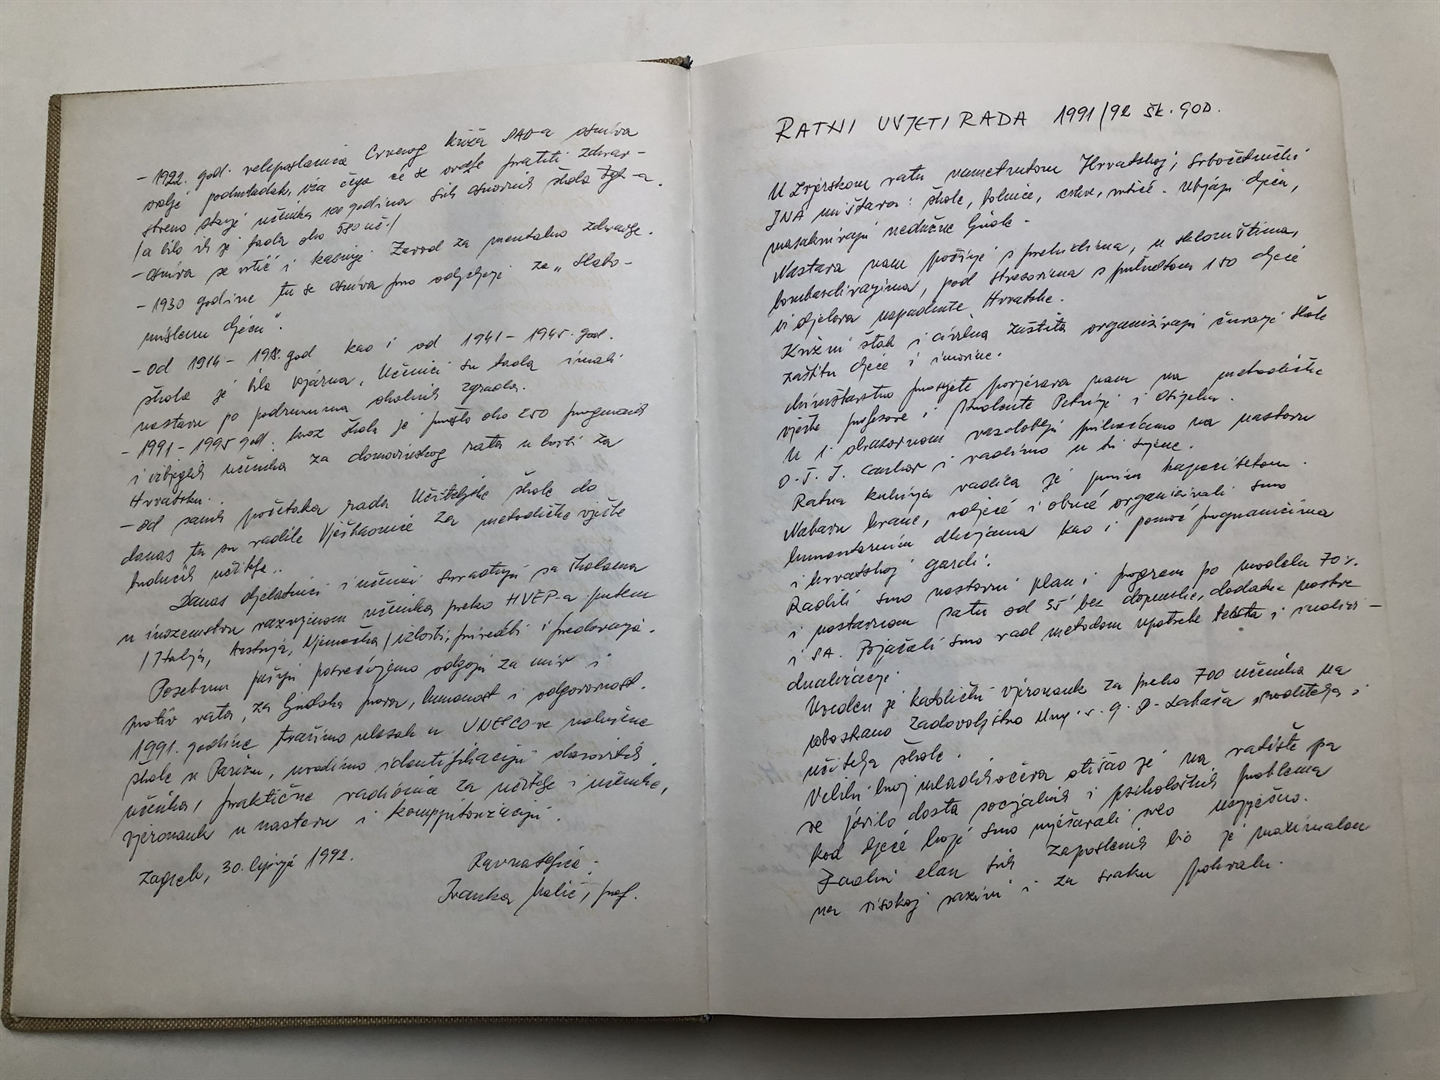 - 1922. god. veleposlanica Crvenog križa SAD-a osniva
podmladak, via čega će se ovdje pratiti zdrav-
stveno stanje učenika 100 godina svih osnovnih škola Zgb-a.
(a bilo ih je tada oko 580 uč.)
- osniva se vrtić i kasnije Zavod za mentalno zdravlje.
- 1930 godine tu se osniva prvo odjeljenje za „Slabo-
umnu djecu".
- od 1914 - 1918. god kao i od 1941 - 1945. god.
škola je bila vojarna. Učenici su tada imali
nastavu po podrumima okolnih zgrada.
- 1991 - 1995 god. kroz školu je prošlo oko 250 prognanih
i izbjeglih učenika za domovinskog rata u borbi za
Hrvatsku.
- od samih početaka rada Učiteljske škole do
danas tu su radile Vježbaonice za metodičke vježbe
budućih učitelja.
Danas djelatnici i učenici surađuju sa školama
u inozemstvu razmjenom učenika preko HVEP-a putem
(Italija, Austrija, Njemačka) izložbi, priredbi i predavanja.
Posebnu pažnju posvećujemo odgoju za mir i
protiv rata, za ljudska prava, humanost i odgovornost.
1991. godine tražimo ulazak u UNESCO-ve
škole u Parizu, uvodimo identifikaciju darovitih
učenika, praktične radionice za učitelje i učenike,
vjeronauk u nastavu i kompjutorizaciju.
Zagreb, 30. lipnja 1992.
Ravnateljica:
Ivanka Malić, prof.
RATNI UVJETI RADA 1991/92 ŠK. GOD.
U zvjerskom ratu nametnutom Hrvatskoj, Srbočetnički
JNA uništava: škole, bolnice, crkve, vrtiće. Ubijaju djecu,
masakriraju nedužne ljude.
Nastava nam počinje s prekidima, u skloništima,
bombardiranjima, pod stresovima s pridošlom 150 djece
iz djelova napadnute Hrvatske.
Krizni štab i civilna zaštita organiziraju čuvanje škole
zaštitu djece i imovine.
Ministarstvo prosvjete povjerava nam na metodičke
vježbe profesore i studente Petrinje i Osijeka.
U 1. obrazovnom razdoblju prihvaćamo na nastavu
O.Š. I. Cankar i radimo u tri smjene.
Ratna kuhinja radila je punim kapacitetom.
Nabavu hrane, odjeće i obuće organizirali smo
humanitarnim akcijama kao i pomoć prognanicima
i hrvatskoj gardi.
Radili smo nastavni plan i program po modelu 70%
i nastavnom satu od 35' bez dopunske, dodatne nastave
i SA. Pojačali smo rad metodom upotrebe teksta i indivi-
dualizacije.
Uveden je katolički vjeronauk za preko 700 učenika na
obostrano zadovoljstvo roditelja i
učitelja škole.
Veliki broj muškaraca otišao je na ratište pa
se javilo dosta socijalnih i psiholoških problema
kod djece koje smo rješavali vrlo uspješno.
Radni elan svih zaposlenih bio je maximalan
na visokoj razini i za svaku pohvalu.